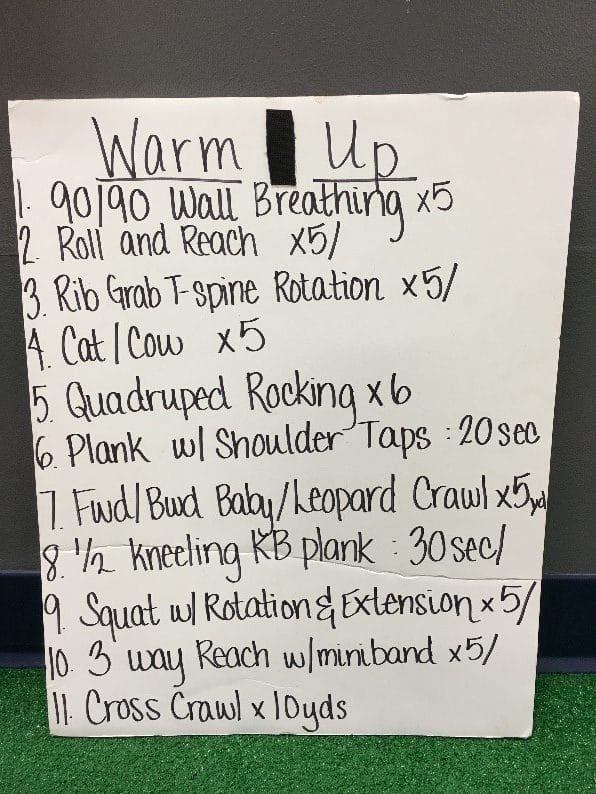 Warm Up
1. 90/90 Wall Breathing x5
2. Roll and Reach x5/
3. Rib Grab T-spine Rotation x5/
4. Cat/Cow x5
5. Quadruped Rocking x6
6. Plank w/ Shoulder Taps : 20sec
7. Fwd/Bwd Baby/Leopard Crawl x5yd
8. 1/2 Kneeling KB plank : 30sec/
9. Squat w/ Rotation & Extension x5/
10. 3 way Reach w/miniband x5/
11. Cross Crawl x 10yds